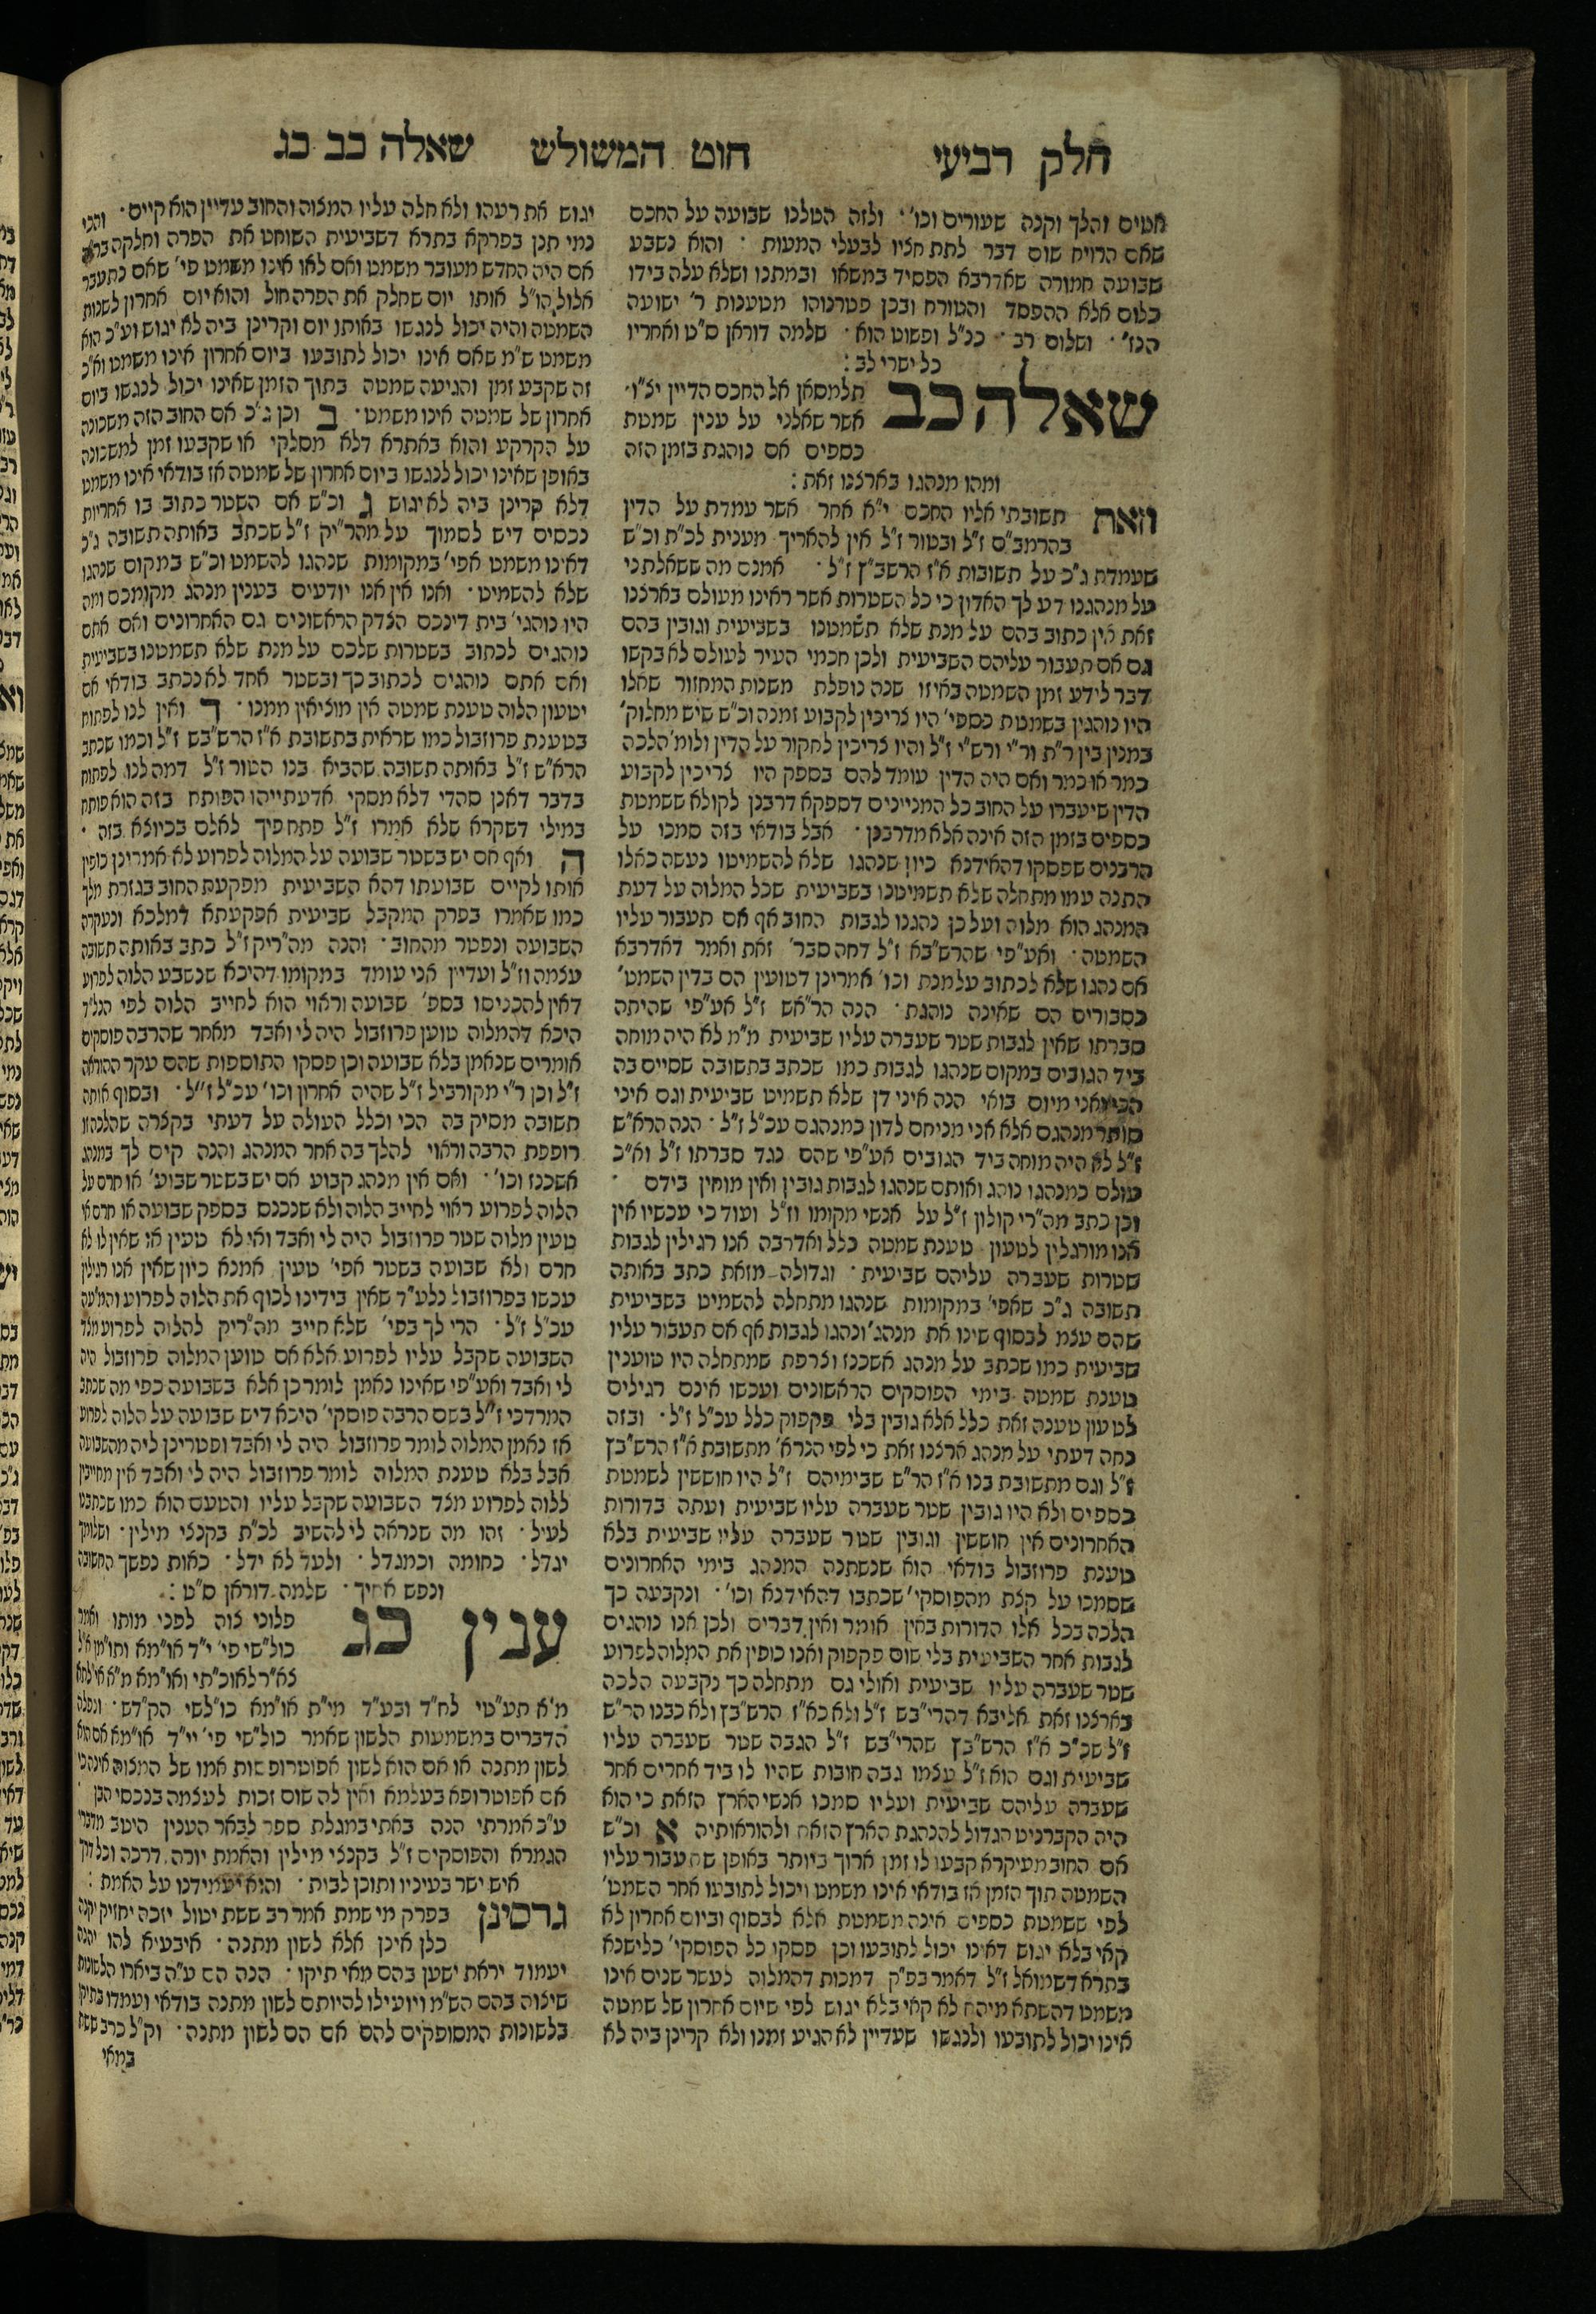 חלק רביעי חוט המשולש שאלה כב כג
אטיס והלך וקנה שעוריס וכו'. ולזה הטלנו שבועה על החכס
שאס הרויח שוס דבר לתת חציו לבעלי המעות : והוא נשבע
שבועה חמורה שאדרבא הפסיד במשאו ובמתנו ושלא עלה בידו
כלוס אלא ההפסד והטורח ובכן פטרנוהו מטענות ר' ישועה
הנז'. ושלוס רב. כנ"ל ופשוט הוא. שלמה דוראן ס"ט ואחריו
כל ישרי לב :
שאלה כב תלמסאן אל החכס הדיין יצ"ו.
אשר שאלני על ענין שמטת
כספיס אס נוהגת בזמן הזה
ומהו מנהגו בארצנו זאת :
וזאת תשובתי אליו החכס י"א אחר אשר עמדת על הדין
בהרמב"ס ז"ל ובטור ז"ל אין להאריך מענית לכ"ת וכ"ש
שעמדת ג"כ על תשובות א"ז הרשב"ץ ז"ל. אמנס מה ששאלת ני
על מנהגנו דע לך האדון כי כל השטרות אשר ראינו מעולס בארצנו
זאת אין כתוב בהס על מנת שלא תשמטנו בשביעית וגובין בהס
גס אס תעבור עליהס השביעית ולכן חכמי העיר לעולס לא בקשו
דבר לידע זמן השמטה באיזו שנה נופלת משנות המחזור שאלו
היו נוהגין בשמטת כספי' היו צריכין לקבוע זמנה וכ"ש שיש מחלוק'
במנין בין ר"ת ור"י ורש"י ז"ל והיו צריכין לחקור על הדין ולומ' הלכה
כמר או כמר ואס היה הדין עומד להס בספק היו צריכין לקבוע
הדין שיעברו על החוב כל המניינים דספקא דרבנן לקולא ששמטת
כספיס בזמן הזה אינה אלא מדרבנן. אבל בודאי בזה סמכו על
הרבניס שפסקו דהאידנא כיון שנהגו שלא להשמיטו נעשה כאלו
התנה עמו מתחלה שלא תשמיטנו בשביעית שכל המלוה על דעת
המנהג הוא מלוה ועל כן נהגנו לגבות החוב אף אס תעבור עליו
השמטה. ואע"פי שהרש"בא ז"ל דחה סבר' זאת ואמר דאדרבא
אס נהגו שלא לכתוב על מנת וכו' אמרינן דטועין הס בדין השמט'
כסבוריס הס שאינה נוהגת. הנה הר"אש ז"ל אע"פי שהיתה
סברתו שאין לגבות שטר שעברה עליו שביעית מ"מ לא היה מוחה
ביד הגוביס במקוס שנהגו לגבות כמו שכתב בתשובה שסייס בה
הכי ואני מיוס בואי הנה איני דן שלא תשמיט שביעית וגס איני
סותר מנהגס אלא אני מניחס לדון כמנהגס עכ"ל ז"ל. הנה הרא"ש
ז"ל לא היה מוחה ביד הגוביס אע"פי שהס נגד סברתו ז"ל וא"כ
עולס כמנהגו נוהג ואותס שנהגו לגבות גובין ואין מוחין בידס .
וכן כתב מה"רי קולון ז"ל על אנשי מקומו וז"ל ועוד כי עכשיו אין
אנו מורגלין לטעון טענת שמטה כלל ואדרבה אנו רגילין לגבות
שטרות שעברה עליהס שביעית. וגדולה מזאת כתב באותה
תשובה ג"כ שאפי' במקומות שנהגו מתחלה להשמיט בשביעית
שהס עצמ לבסוף שינו את מנהג' ונהגו לגבות אף אס תעבור עליו
שביעית כמו שכתב על מנהג אשכנז וצרפת שמתחלה היו טוענין
טענת שמטה בימי הפוסקיס הראשוניס ועכשו אינס רגיליס
לטעון טענה זאת כלל אלא גובין בלי פקפוק כלל עכ"ל ז"ל. ובזה
נחה דעתי על מנהג ארצנו זאת כי לפי הנרא' מתשובת א"ז הרש"בץ
ז"ל וגס מתשובת בנו א"ז הר"ש שבימיהס ז"ל היו חוששין לשמטת
כספיס ולא היו גובין שטר שעברה עליו שביעית ועתה בדורות
האחרוניס אין חוששין וגובין שטר שעברה עליו שביעית בלא
טענת פרוזבול בודאי הוא שנשתנה המנהג בימי האחרוניס
שסמכו על קצת מהפוסקי' שכתבו דהאידנא וכו'. ונקבעה כך
הלכה בכל אלו הדורות באין אומר ואין דבריס ולכן אנו נוהגיס
לגבות אחר השביעית בלי שוס פקפוק ואנו כופין את המלוה לפרוע
שטר שעברה עליו שביעית ואולי גס מתחלה כך נקבעה הלכה
בארצנו זאת אליבא דהרי"בש ז"ל ולא כא"ז הרש"בץ ולא כבנו הר"ש
ז"ל שכ"כ א"ז הרש"בץ שהרי"בש ז"ל הגבה שטר שעברה עליו
שביעית וגס הוא ז"ל עצמו גבה חובות שהיו לו ביד אחריס אחר
שעברה עליהס שביעית ועליו סמכו אנשי הארץ הזאת כי הוא
היה הקברניט הגדול להנהגת הארץ הזאת ולהוראותיה א וכ"ש
אס החוב מעיקרא קבעו לו זמן ארוך ביותר באופן שתעבור עליו
השמטה תוך הזמן אז בודאי אינו משמט ויכול לתובעו אחר השמט'
לפי ששמטת כספיס אינה משמטת אלא לבסוף וביוס אחרון לא
קאי בלא יגוש דאינו יכול לתובעו וכן פסקו כל הפוסקי' כלישנא
בתרא דשמואל ז"ל דאמר בפ"ק דמכות דהמלוה לעשר שניס אינו
משמט דהשתא מיהת לא קאי בלא יגוש לפי שיוס אחרון של שמטה
אינו יכול לתובעו ולנגשו שעדיין לא הגיע זמנו ולא קרינן ביה לא
יגוש את רעהו ולא חלה עליו המצוה והחוב עדיין הוא קייס. והכי
נמי תנן בפרקא בתרא דשביעית השוחט את הפרה וחלקה בראש
אס היה החדש מעובר משמט ואס לאו אינו משמט פי' שאס נתעבר
אלול הו"ל אותו יוס שחלק את הפרה חול והוא יוס אחרון לשנות
השמטה והיה יכול לנגשו באותו יוס וקרינן ביה לא יגוש וע"כ הוא
משמט ש"מ שאס אינו יכול לתובעו ביוס אחרון אינו משמט וא"כ
זה שקבע זמן והגיעה שמטה בתוך הזמן שאינו יכול לנגשו ביוס
אחרון של שמטה אינו משמט. ב וכן ג"כ אס החוב הזה משכונה
על הקרקע והוא באתרא דלא מסלקי או שקבעו זמן למשכונה
באופן שאינו יכול לנגשו ביוס אחרון של שמטה אז בודאי אינו משמט
דלא קרינן ביה לא יגוש ג וכ"ש אס השטר כתוב בו אחריות
נכסיס דיש לסמוך על מהר"יק ז"ל שכתב באותה תשובה ג"כ
דאינו משמט אפי' במקומות שנהגו להשמט וכ"ש במקוס שנהגו
שלא להשמיט. ואנו אין אנו יודעיס בענין מנהג מקומכס ומה
היו נוהגי' בית דינכס הצדק הראשוניס גס האחרוניס ואס אתס
נוהגיס לכתוב בשטרות שלכס על מנת שלא תשמטנו בשביעית
ואס אתס נוהגיס לכתוב כך ובשטר אחד לא נכתב בודאי אס
יטעון הלוה טענת שמטה אין מוציאין ממנו. ד ואין לנו לפתוח
בטענת פרוזבול כמו שראית בתשובת א"ז הרש"בש ז"ל וכמו שכתב
הרא"ש ז"ל באותה תשובה שהביא בנו הטור ז"ל דמה לנו לפתוח
בדבר דאנן סהדי דלא מסקי אדעתייהו הפותח בזה הוא פותח
במילי דשקרא שלא אמרו ז"ל פתח פיך לאלס בכיוצא בזה .
ה ואף אס יש בשטר שבועה על המלוה לפרוע לא אמרינן כופין
אותו לקייס שבועתו דהא השביעית מפקעת החוב בגזרת מלך
כמו שאמרו בפרק המקבל שביעית אפקעתא דמלכא ונעקרה
השבועה ונפטר מהחוב. והנה מה"ריק ז"ל כתב באותה תשובה
עצמה וז"ל ועדיין אני עומד במקומו דהיכא שנשבע הלוה לפרוע
דאין להכניסו בספ' שבועה וראוי הוא לחייב הלוה לפי הנל"ד
היכא דהמלוה טוען פרוזבול היה לי ואבד מאחר שהרבה פוסקיס
אומריס שנאמן בלא שבועה וכן פסקו התוספות שהס עקר ההוראה
ז"ל וכן ר"י מקורביל ז"ל שהיה אחרון וכו' עכ"ל ז"ל. ובסוף אותה
תשובה מסיק בה הכי וכלל העולה על דעתי בקצרה שהלכה זו
רופפת הרבה וראוי להלך בה אחר המנהג והנה קיס לך במנהג
אשכנז וכו'. ואס אין מנהג קבוע אס יש בשטר שבוע' או חרס על
הלוה לפרוע ראוי לחייב הלוה ולא שנכנס בספק שבועה או חרס או
טעין מלוה שטר פרוזבול היה לי ואבד ואי לא טעין אי שאין לו לא
חרס ולא שבועה בשטר אפי' טעין אמנא כיון שאין אנו רגילין
עכשו בפרוזבול נלע"ד שאין בידינו לכוף את הלוה לפרוע
עכ"ל ז"ל. הרי לך בפי' שלא חייב מה"ריק להלוה לפרוע מצד
השבועה שקבל עליו לפרוע אלא אס טוען המלוה פרוזבול היה
לי ואבד ואע"פי שאינו נאמן לומר כן אלא בשבועה כפי מה שכתב
המרדכי ז"ל בשס הרבה פוסקי' היכא דיש שבועה על הלוה לפרוע
אז נאמן המלוה לומר פרוזבול היה לי ואבד ופטרינן ליה מהשבועה
אבל בלא טענת המלוה לומר פרוזבול היה לי ואבד אין מחייבין
ללוה לפרוע מצד השבועה שקבל עליו והטעס הוא כמו שכתבנו
לעיל. זהו מה שנראה לי להשיב לכ"ת בקצצי מילין. ושלומך
יגדל. כחומה וכמגדל. ולעד לא ידל. כאות נפשך החשובה
ונפש אחיך. שלמה דוראן ס"ט :
ענין כג פלוני צוה לפני מותו ואמר
כול"שי פי' י"ד או"מא
מ'א תע"טי לח"ד ובע"ד מי"ת או"מא כו"לשי הק"דש. ונפלה
הדבריס במשמעות הלשון שאמר כול"שי פי' יי"ד או"מא אס הוא
לשון מתנה או אס הוא לשון אפוטרופסות אמו של המצוה אינה כי
אס אפוטרופא בעלמא ואין לה שוס זכות לעצמה בנכסי הבן .
ע"כ אמרתי הנה באתי במגלת ספר לבאר הענין היטב מדברי
הגמרא והפוסקיס ז"ל בקצצי מילין והאמת יורה דרכה וכל דרך
איש ישר בעיניו ותוכן לבות. והוא יעמידנו על האמת :
גרסינן בפרק מי שמת אמר רב ששת יטול יזכה יחזיק יקנה
כלן אינן אלא לשון מתנה. איבעיא להו יהנה
יעמוד יראת ישען בהס מאי תיקו. הנה הס ע"ה ביארו הלשונות
שיצוה בהס הש"מ ויועילו להיותס לשון מתנה בודאי ועמדו בתיקו
בלשונות המסופקיס להס אס הס לשון מתנה. וק"ל כרב ששת
במאי